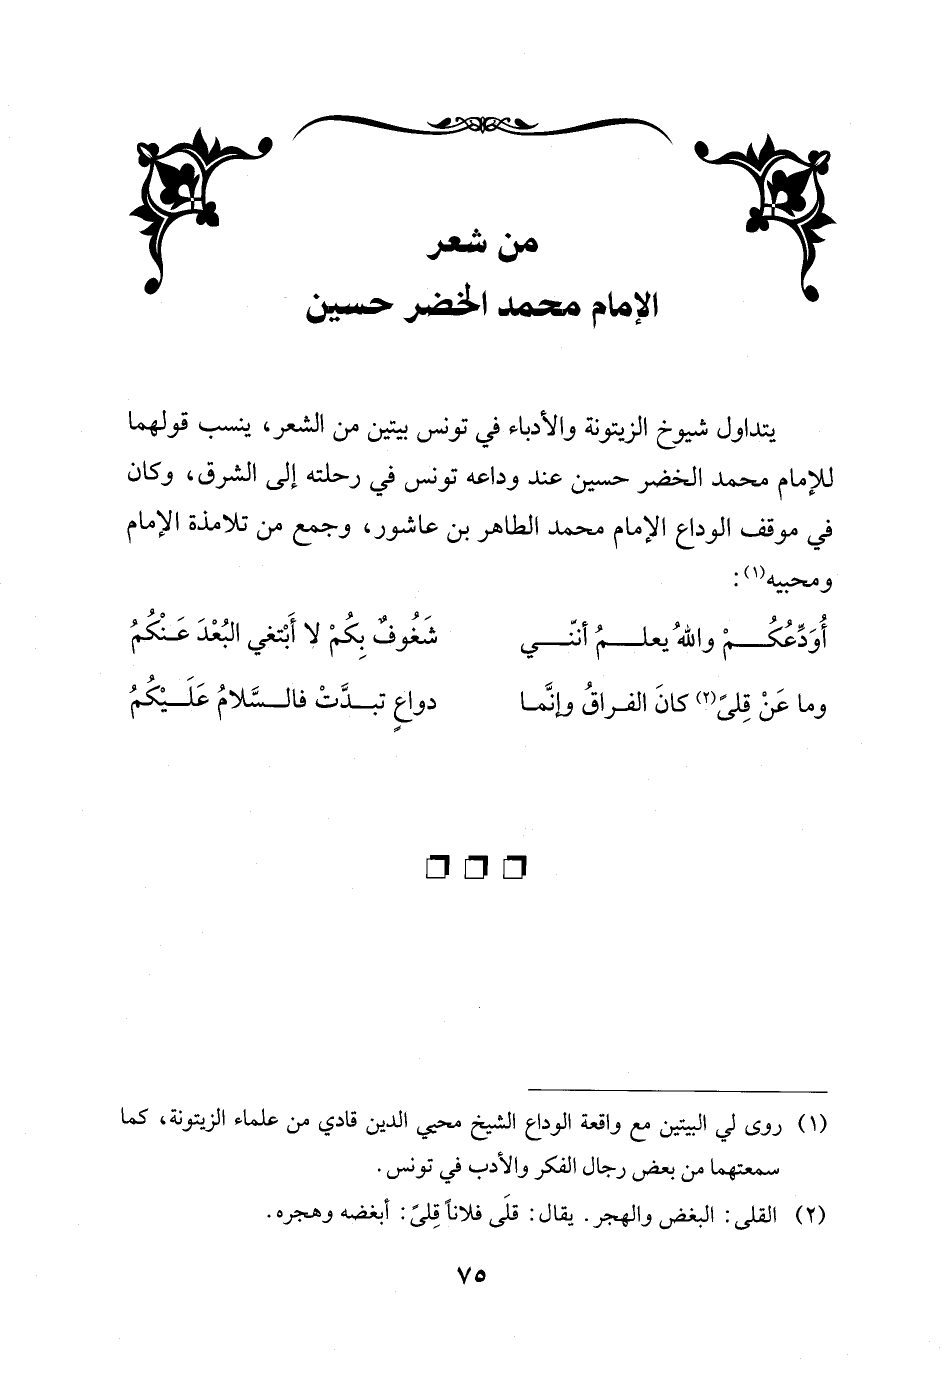 من شعر
الإمام محمد الخضر حسين
يتداول شيوخ الزيتونة والأدباء في تونس بيتين من الشعر، ينسب قولهما
للإمام محمد الخضر حسين عند وداعه تونس في رحلته إلى الشرق، وكان
في موقف الوداع الإمام محمد الطاهر بن عاشور، وجمع من تلامذة الإمام
ومحبيه(١):
أُوَدِّعُكُـــمْ واللهُ يعلـــمُ أننّـــي شَغُوفٌ بِكُمْ لا أَبْتغي البُعْدَ عَـنْكُمُ
وما عَنْ قِلىً(٢) كانَ الفـراقُ وإنَّمـا دواعٍ تبـدَّتْ فالـسَّلامُ عَلَـيْكُمُ
(١) روى لي البيتين مع واقعة الوداع الشيخ محيي الدين قادي من علماء الزيتونة، كما
سمعتهما من بعض رجال الفكر والأدب في تونس.
(٢) القلى: البغض والهجر. يقال: قلَى فلاناً قِلىً: أبغضه وهجره.
٧٥